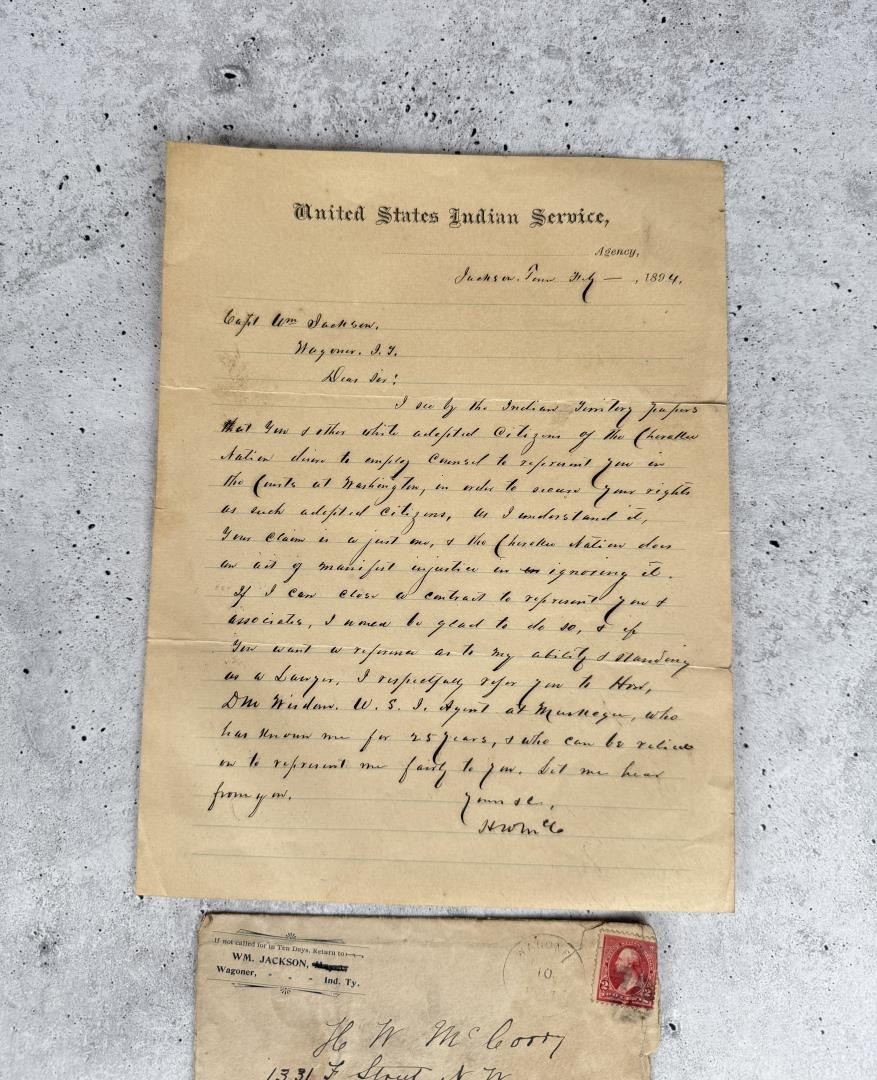 United States Indian Service,
Agency,
Jackson. Tenn Feby — , 1894,
Capt Wm Jackson.
Wagoner. I.T.
Dear Sir:
I see by the Indian Territory papers
that you & other white adopted citizens of the Cherokee
Nation desire to employ counsel to represent you in
the Courts at Washington, in order to secure your rights
as such adopted citizens, As I understand it,
your claim is a just one, & the Cherokee Nation does
an act of manifest injustice in ignoring it.
If I can close a contract to represent you &
associates, I would be glad to do so, & if
you want a reference as to my ability & standing
as a Lawyer, I respectfully refer you to Hon,
DM Wisdom. U. S. I. Agent at Muskogee, who
has known me for 25 years, & who can be relied
on to represent me fairly to you. Let me hear
from you.
Yours &c,
HWMcC
If not called for in Ten Days, Return to
WM. JACKSON,
Wagoner, - - - Ind. Ty.
10
2 2
H W McCoory
1331 F Street N.W.